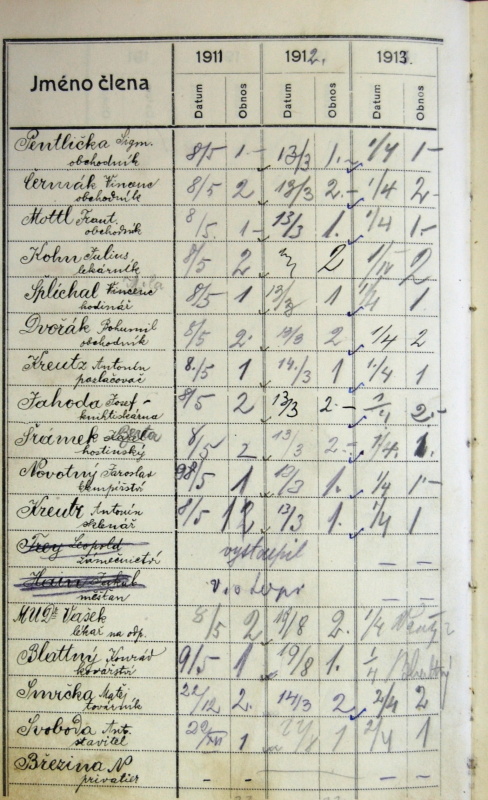 1911 1912. 1913.
Jméno člena Datum Obnos Datum Obnos Datum Obnos
Pentlička Sigm. 8/5 1.- 13/3 1.- 1/4 1-
obchodník
Čermák Vincenc 8/5 2 13/3 2.- 1/4 2-
obchodník
Mottl Frant. 8/5. 1- 13/3 1. 1/4 1.-
obchodník
Kohn Julius 8/5 2 2 1/IV 2
lekárník
Šplíchal Vincenc 8/5 1 13/3 1 1/4 1
hodinář
Dvořák Bohumil 8/5 2. 13/3 2 1/4 2
obchodník
Kreutz Antonín 8./5 1 14./3 1 1./4 1
pozlačovač
Jahoda Josef - 8/5 2 13/3 2.- 2.-
knihtiskárna
Šrámek Berta 8/5 2 13/3 2.- 1/4. 1.
hostinský
Novotný Jaroslav 8/5 1 13/3 1. 1/4 1-
Kreutz Antonín 8/5 2 13/3 1. 1/4 1
sklenář
Frey Leopold vystoupil - -
zámečnictví
- -
měšťan
MUDr Vašek 8/5 2 19/8 2. 1/4
lékař na odp.
Blattný Konrád 9/5 1 19/8 1. 1/4 Blattný
kovářství
Smrčka Matěj 22/12 2. 14/3 2 2/4 2
továrník
Svoboda Ant. 22/XII 1 1 2/4 1
stavitel
Březina N - - - -
privatier